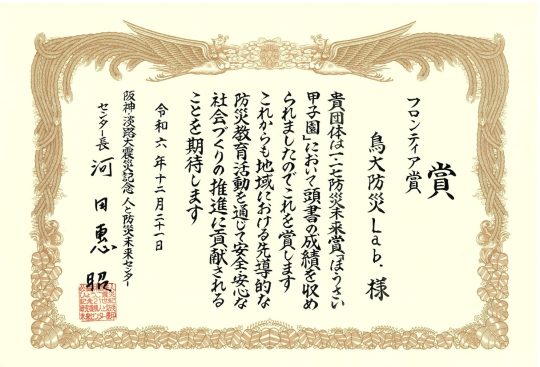 賞
フロンティア賞
鳥大防災Lab. 様
貴団体は一・一七防災未来賞「ぼうさい
甲子園」において頭書の成績を収め
られましたのでこれを賞します
これからも地域における先導的な
防災教育活動を通じて安全・安心な
社会づくりの推進に貢献される
ことを期待します
令和六年十二月二十一日
阪神・淡路大震災記念 人と防災未来センター
センター長 河田惠昭